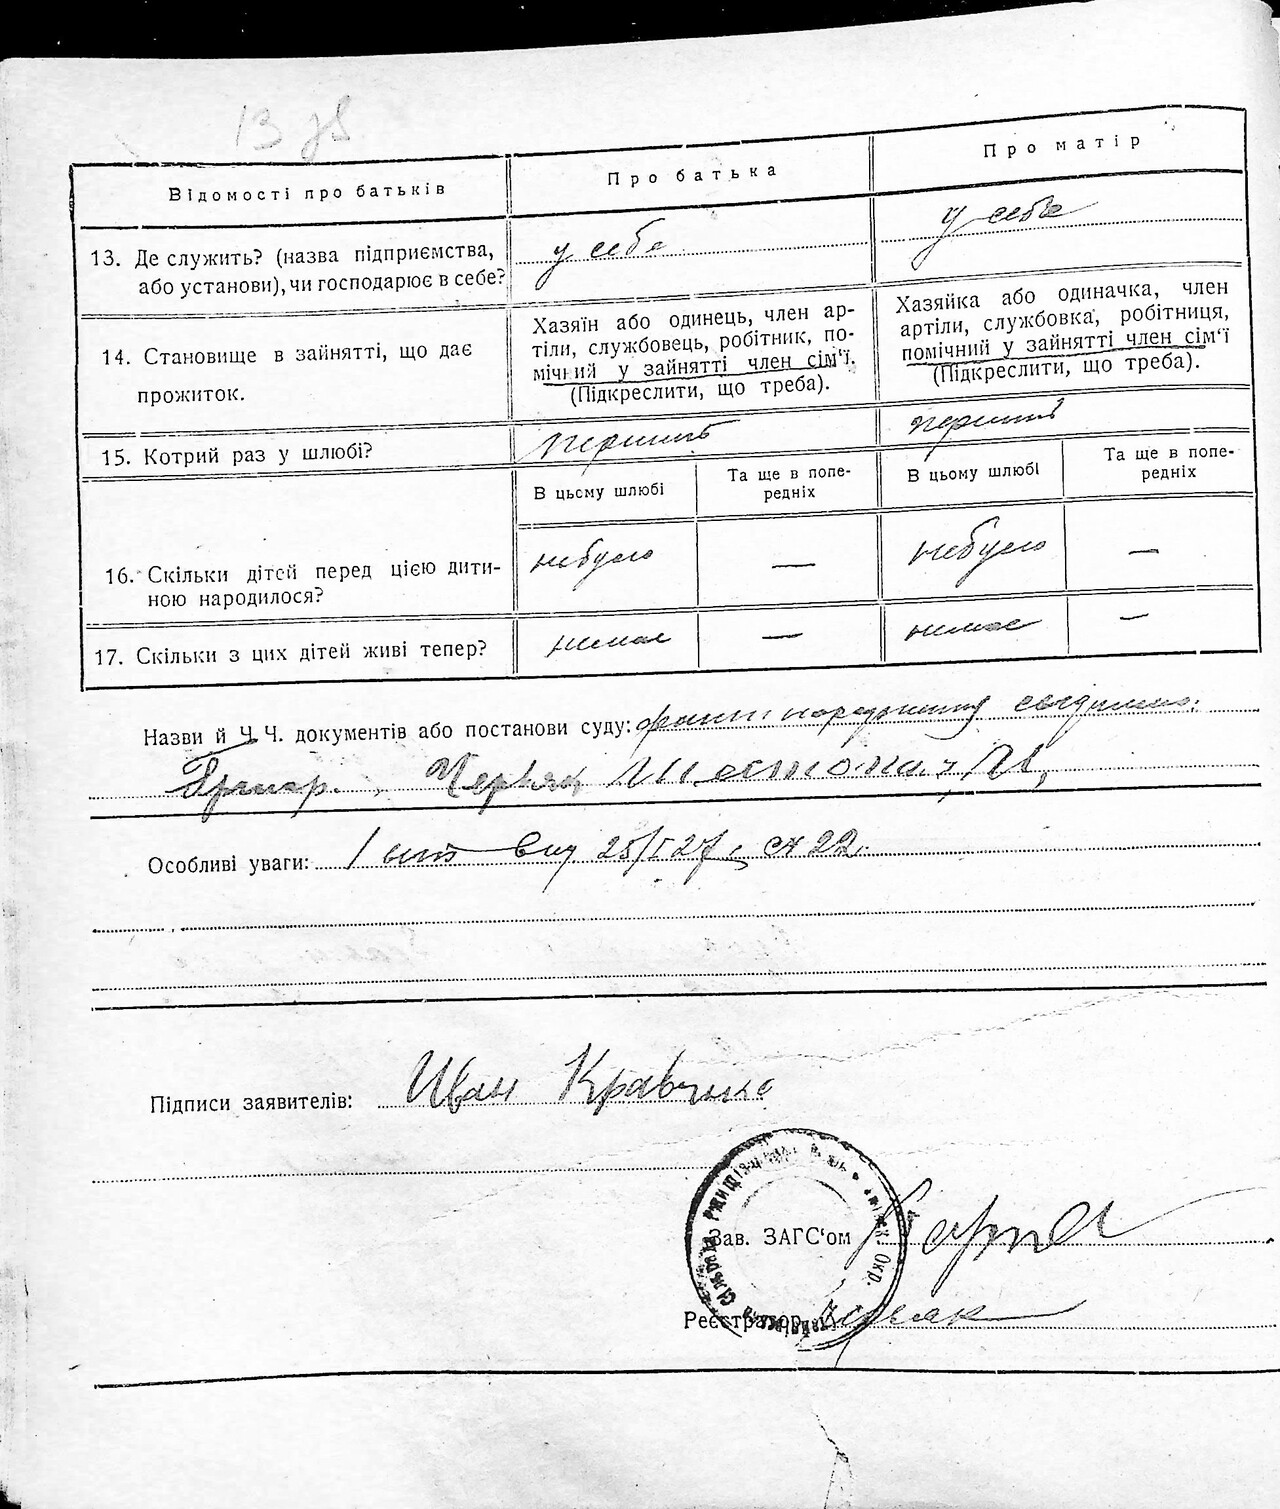 13
Відомості про батьків
Про батька
Про матір
13. Де служить? (назва підприємства,
або установи), чи господарює в себе?
у себе
у себе
14. Становище в зайнятті, що дає
прожиток.
Хазяїн або одинець, член ар-
тіли, службовець, робітник, по-
мічний у зайнятті член сім‘ї.
(Підкреслити, що треба).
Хазяйка або одиначка, член
артіли, службовка, робітниця,
помічний у зайнятті член сім‘ї
(Підкреслити, що треба).
15. Котрий раз у шлюбі?
перший
перший
В цьому шлюбі
Та ще в попе-
редніх
В цьому шлюбі
Та ще в попе-
редніх
16. Скільки дітей перед цією дити-
ною народилося?
небуло
—
небуло
—
17. Скільки з цих дітей живі тепер?
немає
—
немає
—
Назви й Ч.Ч. документів або постанови суду: факт народження
Черняк Шестопал
Особливі уваги: 25/I 27 ст 22.
Підписи заявителів: Иван Кравченко
Зав. ЗАГС‘ом
Реєстратор
Окр.